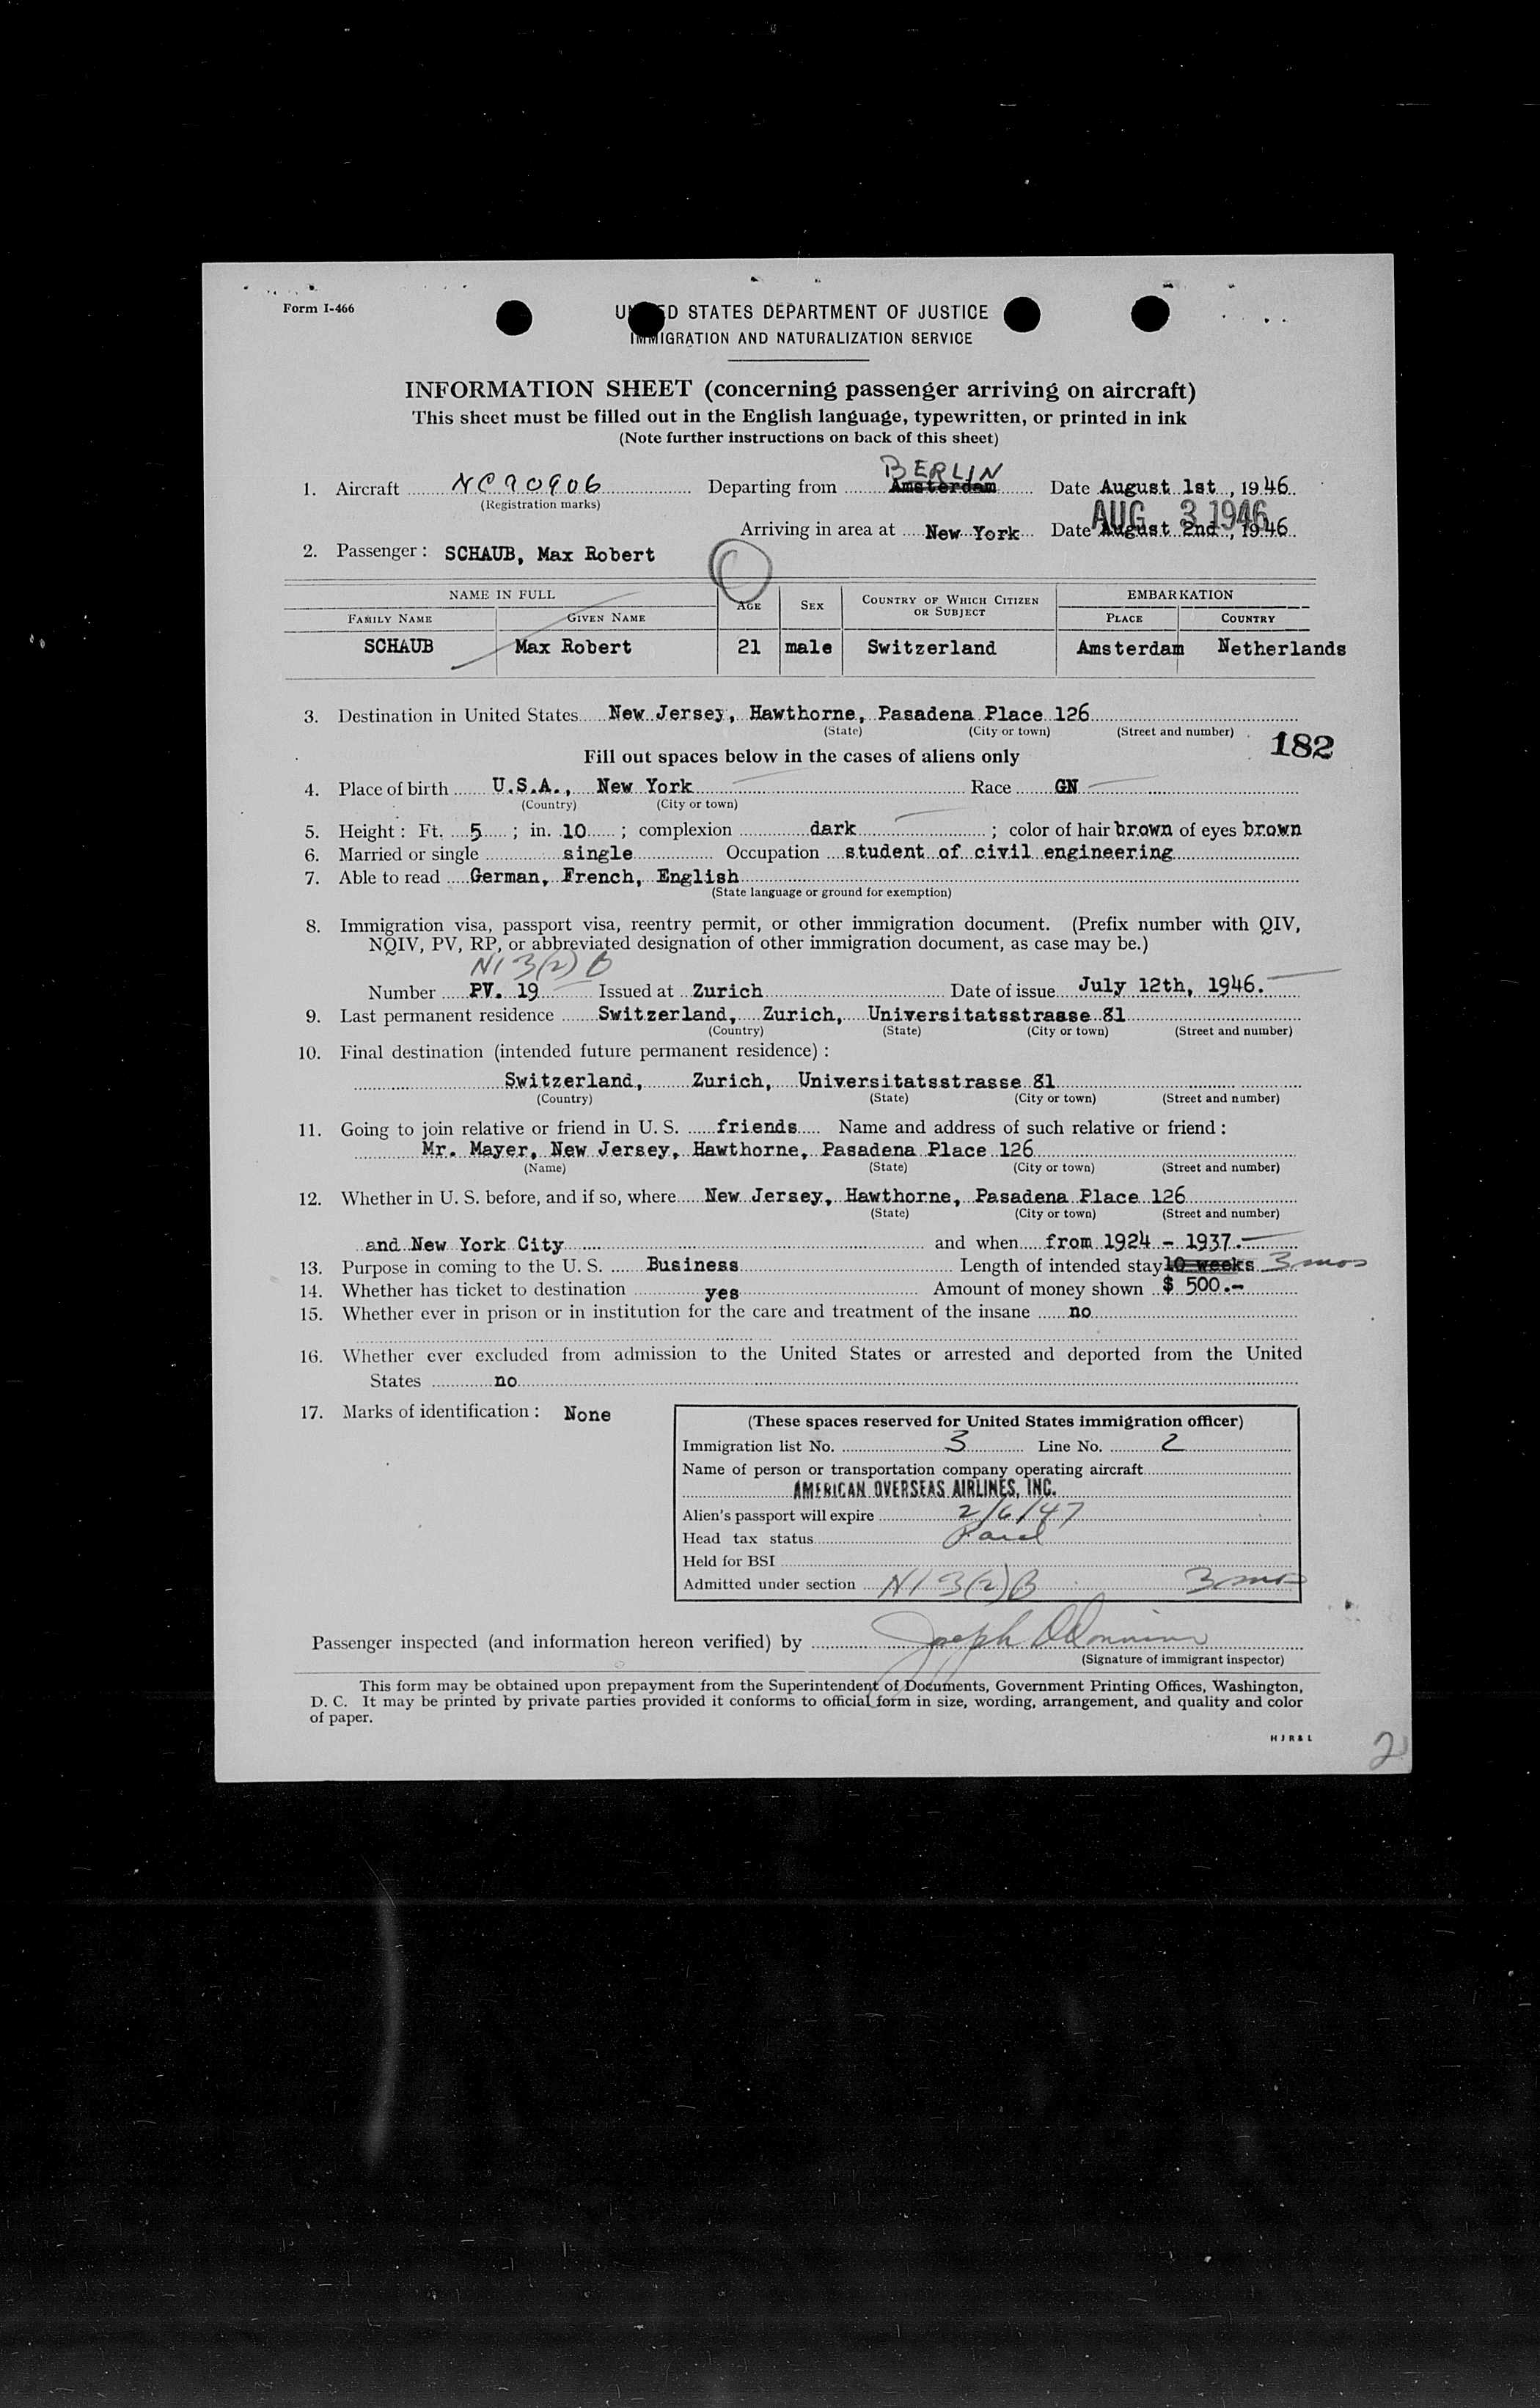 Form I-466
UNITED STATES DEPARTMENT OF JUSTICE
IMMIGRATION AND NATURALIZATION SERVICE
INFORMATION SHEET (concerning passenger arriving on aircraft)
This sheet must be filled out in the English language, typewritten, or printed in ink
(Note further instructions on back of this sheet)
BERLIN
1. Aircraft NC90906 Departing from Amsterdam Date August 1st, 1946.
(Registration marks)
AUG 3 1946
Arriving in area at New York Date August 2nd, 1946.
2. Passenger: SCHAUB, Max Robert
NAME IN FULL AGE SEX COUNTRY OF WHICH CITIZEN OR SUBJECT EMBARKATION
FAMILY NAME GIVEN NAME PLACE COUNTRY
SCHAUB Max Robert 21 male Switzerland Amsterdam Netherlands
3. Destination in United States New Jersey, Hawthorne, Pasadena Place 126
(State) (City or town) (Street and number)
182
Fill out spaces below in the cases of aliens only
4. Place of birth U.S.A., New York Race GN
(Country) (City or town)
5. Height: Ft. 5; in. 10; complexion dark; color of hair brown of eyes brown
6. Married or single single Occupation student of civil engineering
7. Able to read German, French, English
(State language or ground for exemption)
8. Immigration visa, passport visa, reentry permit, or other immigration document. (Prefix number with QIV,
NQIV, PV, RP, or abbreviated designation of other immigration document, as case may be.)
NI 3(2) B
Number PV. 19 Issued at Zurich Date of issue July 12th, 1946.
9. Last permanent residence Switzerland, Zurich, Universitatsstrasse 81
(Country) (State) (City or town) (Street and number)
10. Final destination (intended future permanent residence):
Switzerland, Zurich, Universitatsstrasse 81
(Country) (State) (City or town) (Street and number)
11. Going to join relative or friend in U. S. friends Name and address of such relative or friend:
Mr. Mayer, New Jersey, Hawthorne, Pasadena Place 126
(Name) (State) (City or town) (Street and number)
12. Whether in U. S. before, and if so, where New Jersey, Hawthorne, Pasadena Place 126
(State) (City or town) (Street and number)
and New York City and when from 1924 - 1937.-
13. Purpose in coming to the U. S. Business Length of intended stay 10 weeks 3 mos
14. Whether has ticket to destination yes Amount of money shown $ 500.-
15. Whether ever in prison or in institution for the care and treatment of the insane no
16. Whether ever excluded from admission to the United States or arrested and deported from the United
States no
17. Marks of identification: None
(These spaces reserved for United States immigration officer)
Immigration list No. 3 Line No. 2
Name of person or transportation company operating aircraft
AMERICAN OVERSEAS AIRLINES, INC.
Alien's passport will expire 2/6/47
Head tax status Paid
Held for BSI
Admitted under section NI 3(2) B 3 mos
Passenger inspected (and information hereon verified) by Joseph
(Signature of immigrant inspector)
This form may be obtained upon prepayment from the Superintendent of Documents, Government Printing Offices, Washington,
D. C. It may be printed by private parties provided it conforms to official form in size, wording, arrangement, and quality and color
of paper.
HJR&L
2